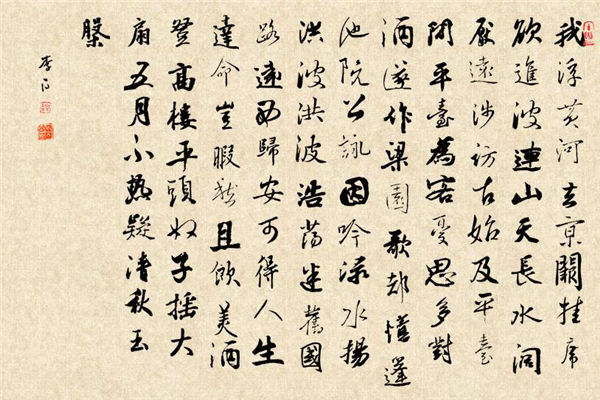 我浮黄河去京闕挂席
欲進波連山天長水闊
厭遠涉訪古始及平臺
間平臺為客憂思多對
酒遂作梁園歌却憶蓬
池阮公詠因吟渌水揚
洪波洪波浩蕩迷舊國
路遠西歸安可得人生
達命豈暇愁且飲美酒
登高樓平頭奴子摇大
扇五月不熱疑清秋玉
槃
李白